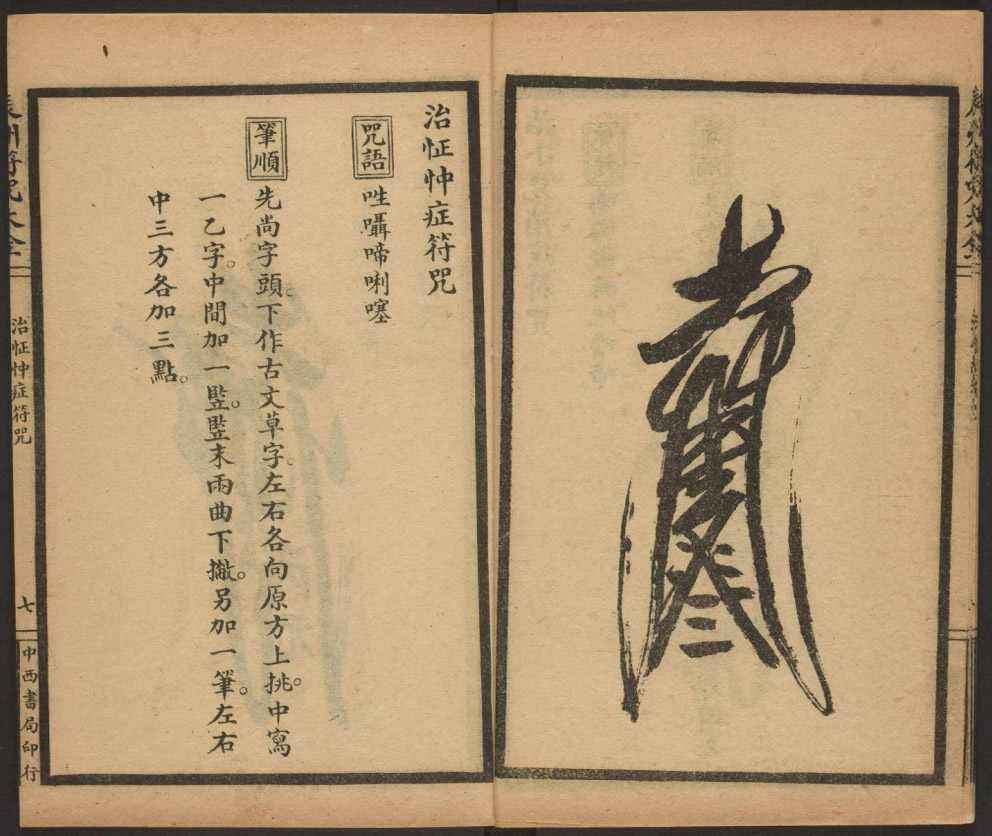 治怔忡症符咒
咒語
呠囁啼唎噻
筆順
先尚字頭。下作古文草字。左右各向原方上挑。中寫
一乙字。中間加一豎。豎末兩曲下撇。另加一筆。左右
中三方各加三點。
辰州符咒大全
治怔忡症符咒
七
中西書局印行